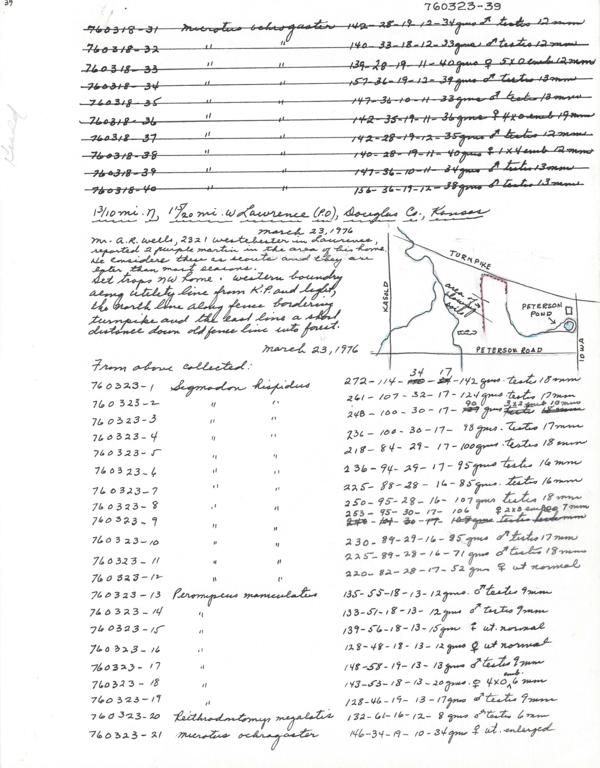 39
760323-39
760318-31 Microtus ochrogaster 142-28-19-12-34gms ♂ testes 12mm
760318-32 " " 140-33-18-12-33gms ♂ testes 12mm
760318-33 " " 139-28-19-11-40gms ♀ 5x0 emb 12mm
760318-34 " " 157-36-19-12-39gms ♂ testes 13mm
760318-35 " " 147-36-10-11-33gms ♂ testes 13mm
760318-36 " " 142-35-19-11-36gms ♀ 4x0 emb 19mm
760318-37 " " 142-28-19-12-35gms ♂ testes 12mm
760318-38 " " 140-28-19-11-40gms ♀ 1x4 emb 12mm
760318-39 " " 147-36-10-11-34gms ♂ testes 13mm
760318-40 " " 156-36-19-12-38gms ♂ testes 13mm
13/10 mi. N, 1 15/20 mi. W Lawrence (P.O), Douglas Co., Kansas
March 23, 1976
Mr. A.R. Wells, 2321 Westchester in Lawrence,
reported a purple martin in the area of his home.
We considers these as scouts and they are
later than most seasons.
Set traps NW home. Western boundry
along utility line from K.P. and light,
the north line along fence bordering
turnpike and the east line a short
distance down old fence line into forest.
TURNPIKE
KASOLD
area of
PETERSON
POND
PETERSON ROAD
IOWA
March 23, 1976
From above collected:
760323-1 Sigmodon hispidus 272-114-34-17-142gms. testes 18mm
760323-2 " " 261-107-32-17-124gms testes 17mm
760323-3 " " 248-100-30-17-90 gms 3x3 emb 10mm
760323-4 " " 236-100-30-17- 98gms. testes 17mm
760323-5 " " 218-84-29-17-100gms. testes 18mm
760323-6 " " 236-94-29-17-95gms testes 16mm
760323-7 " " 225-88-28-16-85gms. testes 16mm
760323-8 " " 250-95-28-16-107gms testes 18mm
760323-9 " " 253-95-30-17-106 ♀ 2x3 emb 7mm
760323-10 " " 230-89-29-16-85gms ♂ testes 17mm
760323-11 " " 225-89-28-16-71gms ♂ testes 18mm
760323-12 " " 220-82-28-17-52gms ♀ ut normal
760323-13 Peromyscus maniculatus 135-55-18-13-12gms. ♂ testes 9mm
760323-14 " 133-51-18-13-12gms ♂ testes 9mm
760323-15 " 139-56-18-13-15gms ♀ ut. normal
760323-16 " 128-48-18-13-12gms ♀ ut normal
760323-17 " 148-58-19-13-13gms ♂ testes 9mm
760323-18 " 143-53-18-13-20gms. ♀ 4x0 emb. 6mm
760323-19 " 128-46-19-13-17gms ♂ testes 9mm
760323-20 Reithrodontomys megalotis 132-61-16-12-8gms ♂ testes 6mm
760323-21 Microtus ochrogaster 146-34-19-10-34gms ♀ ut. enlarged